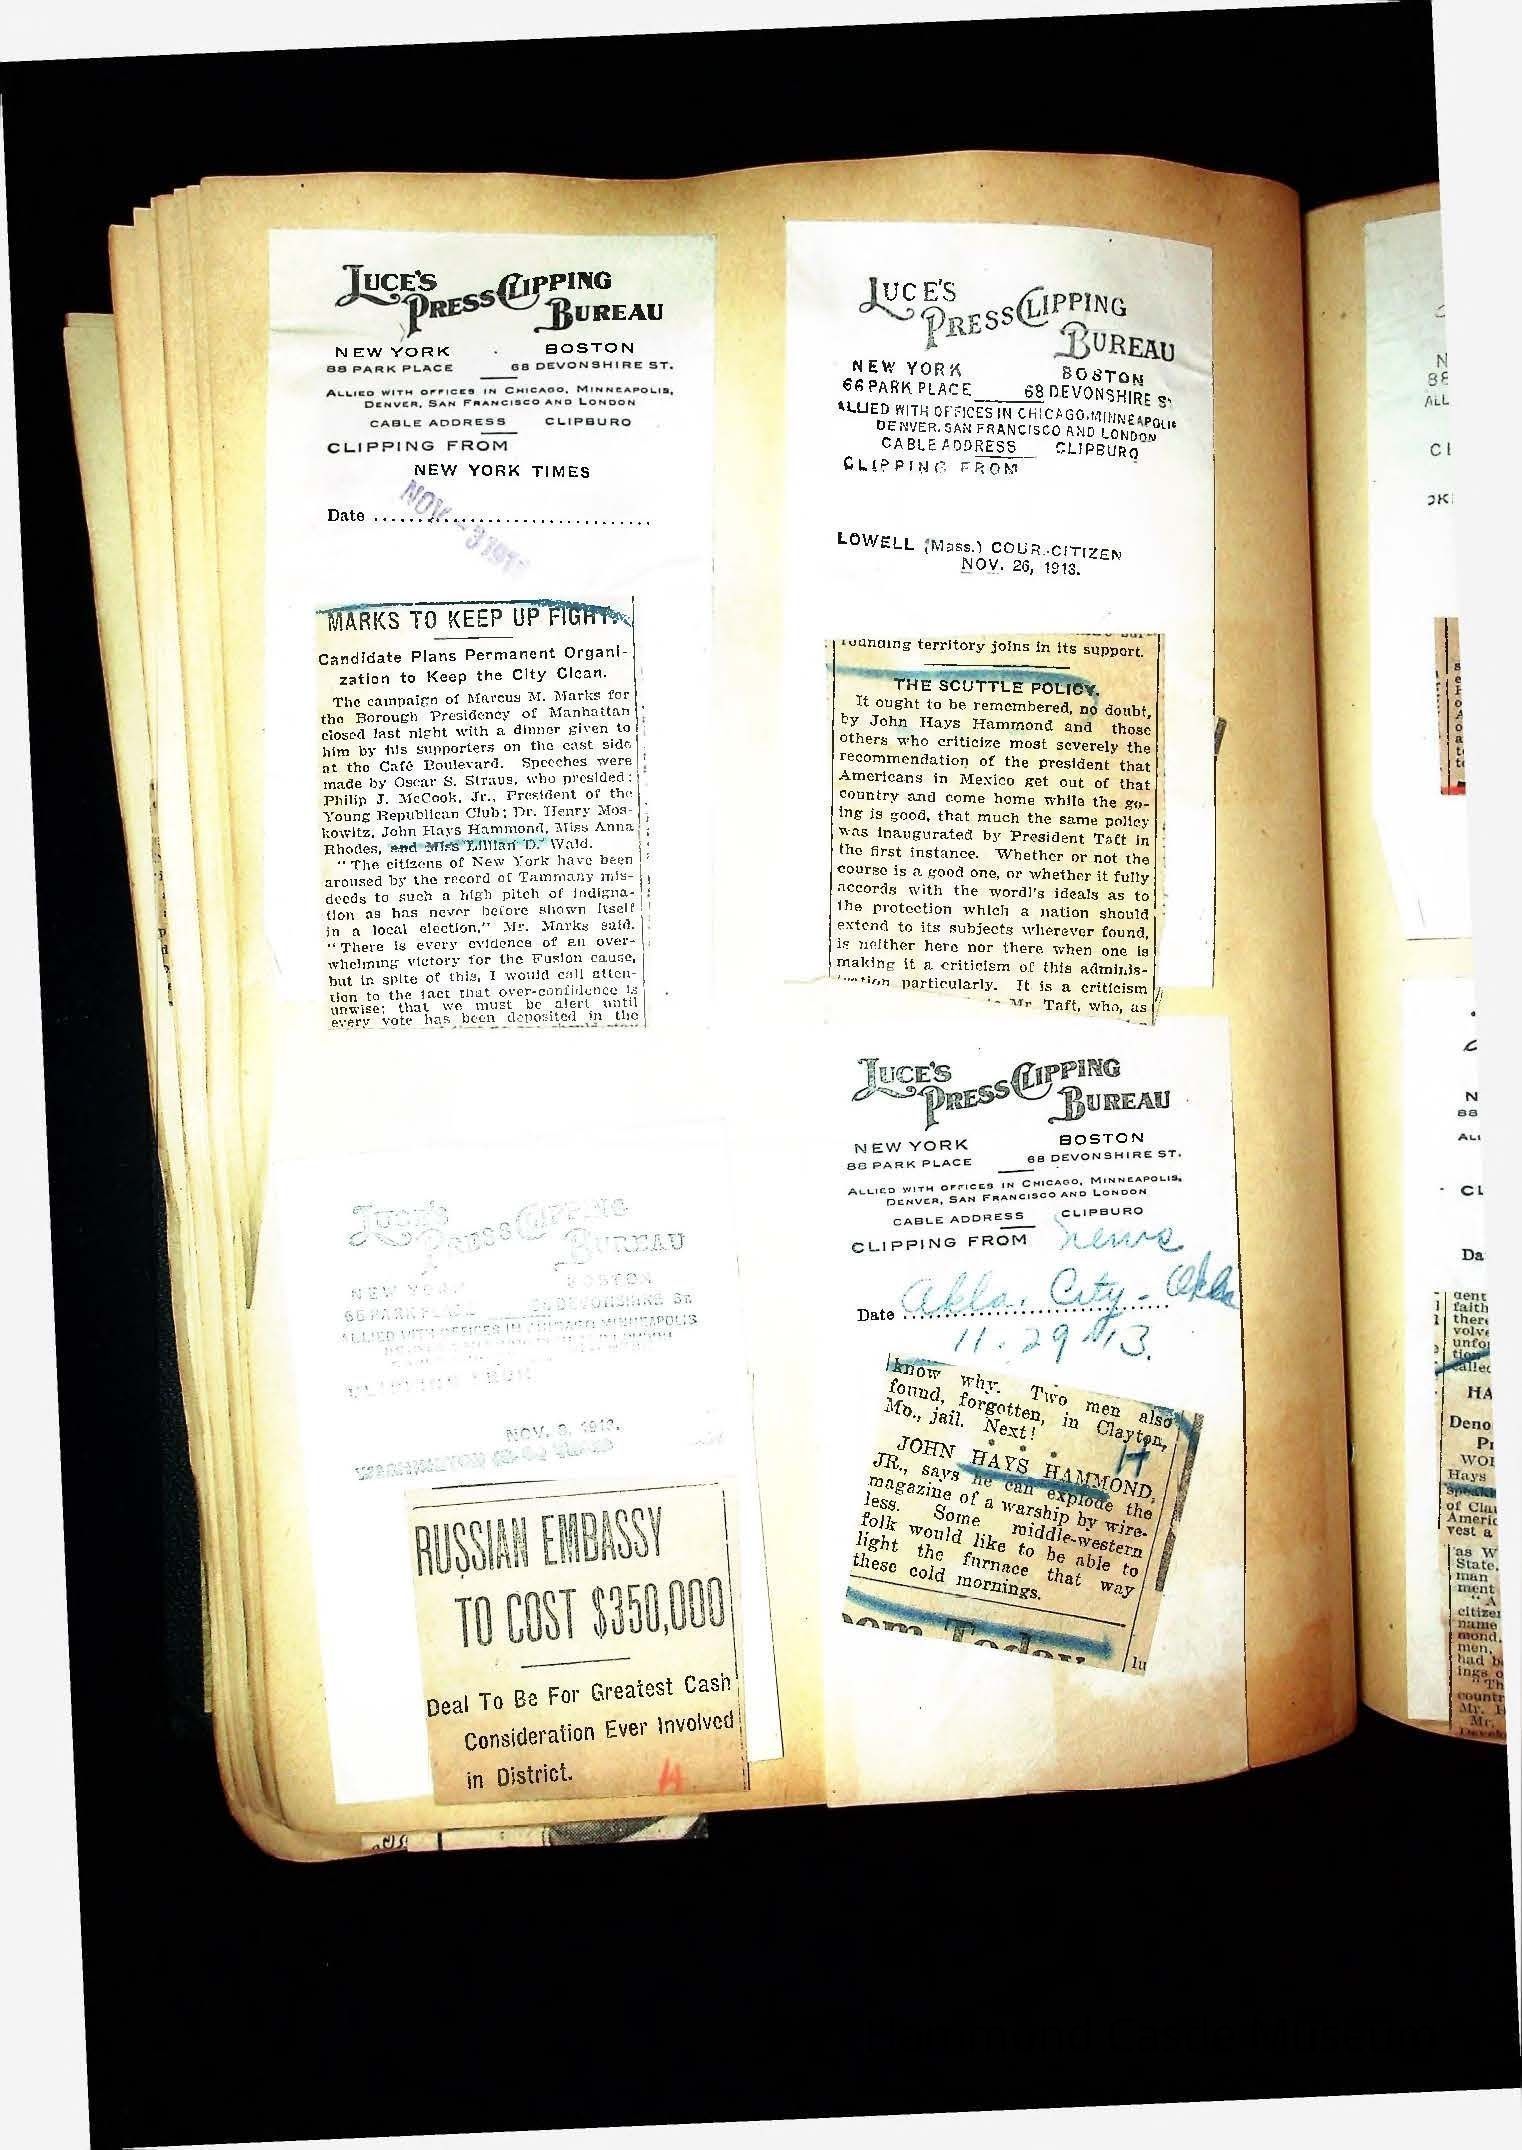 LUCE'S
PRESS CLIPPING
BUREAU
NEW YORK BOSTON
88 PARK PLACE 68 DEVONSHIRE ST.
ALLIED WITH OFFICES IN CHICAGO, MINNEAPOLIS,
DENVER, SAN FRANCISCO AND LONDON
CABLE ADDRESS CLIPBURO
CLIPPING FROM
NEW YORK TIMES
Date
NOV - 3 191
MARKS TO KEEP UP FIGHT.
Candidate Plans Permanent Organi-
zation to Keep the City Clean.
The campaign of Marcus M. Marks for
the Borough Presidency of Manhattan
closed last night with a dinner given to
him by his supporters on the east side
at the Café Boulevard. Speeches were
made by Oscar S. Straus, who presided;
Philip J. McCook, Jr., President of the
Young Republican Club; Dr. Henry Mos-
kowitz, John Hays Hammond, Miss Anna
Rhodes, and Miss Lillian D. Wald.
"The citizens of New York have been
aroused by the record of Tammany mis-
deeds to such a high pitch of indigna-
tion as has never before shown itself
in a local election," Mr. Marks said.
"There is every evidence of an over-
whelming victory for the Fusion cause,
but in spite of this, I would call atten-
tion to the fact that over-confidence is
unwise; that we must be alert until
every vote has been deposited in the
LUCE'S
PRESS CLIPPING
BUREAU
NEW YORK BOSTON
66 PARK PLACE 68 DEVONSHIRE S
ALLIED WITH OFFICES IN CHICAGO, MINNEAPOLIS
DENVER, SAN FRANCISCO AND LONDON
CABLE ADDRESS CLIPBURO
CLIPPING FROM
LOWELL (Mass.) COUR.-CITIZEN
NOV. 26, 1913.
rounding territory joins in its support.
THE SCUTTLE POLICY.
It ought to be remembered, no doubt,
by John Hays Hammond and those
others who criticize most severely the
recommendation of the president that
Americans in Mexico get out of that
country and come home while the go-
ing is good, that much the same policy
was inaugurated by President Taft in
the first instance. Whether or not the
course is a good one, or whether it fully
accords with the wordl's ideals as to
the protection which a nation should
extend to its subjects wherever found,
is neither here nor there when one is
making it a criticism of this adminis-
tration particularly. It is a criticism
Mr. Taft, who, as
LUCE'S
PRESS CLIPPING
BUREAU
NEW YORK BOSTON
66 PARK PLACE 68 DEVONSHIRE ST.
ALLIED WITH OFFICES IN CHICAGO MINNEAPOLIS
CLIPPING FROM
NOV. 3, 1913.
WASHINGTON
RUSSIAN EMBASSY
TO COST $350,000
Deal To Be For Greatest Cash
Consideration Ever Involved
in District.
H
LUCE'S
PRESS CLIPPING
BUREAU
NEW YORK BOSTON
88 PARK PLACE 68 DEVONSHIRE ST.
ALLIED WITH OFFICES IN CHICAGO, MINNEAPOLIS,
DENVER, SAN FRANCISCO AND LONDON
CABLE ADDRESS CLIPBURO
CLIPPING FROM News
Date Okla. City - Okla
11.29.13.
know why. Two men also
found, forgotten, in Clayton,
Mo., jail. Next!
H
JOHN HAYS HAMMOND,
JR., says he can explode the
magazine of a warship by wire-
less. Some middle-western
folk would like to be able to
light the furnace that way
these cold mornings.
Today
Deno
Hays
of Cla
Americ
vest a
as W
State,
man
ment
citizen
name
mond,
men,
had b
ings o
"Th
countr
Mr. H
Mr.
Hammond Castle Museum